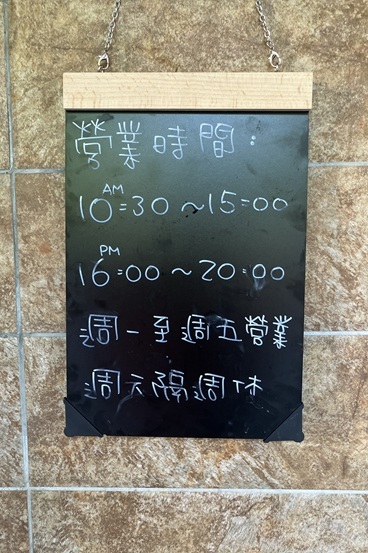 營業時間:
AM
10:30~15:00
PM
16:00~20:00
週一至週五營業
週六隔週休